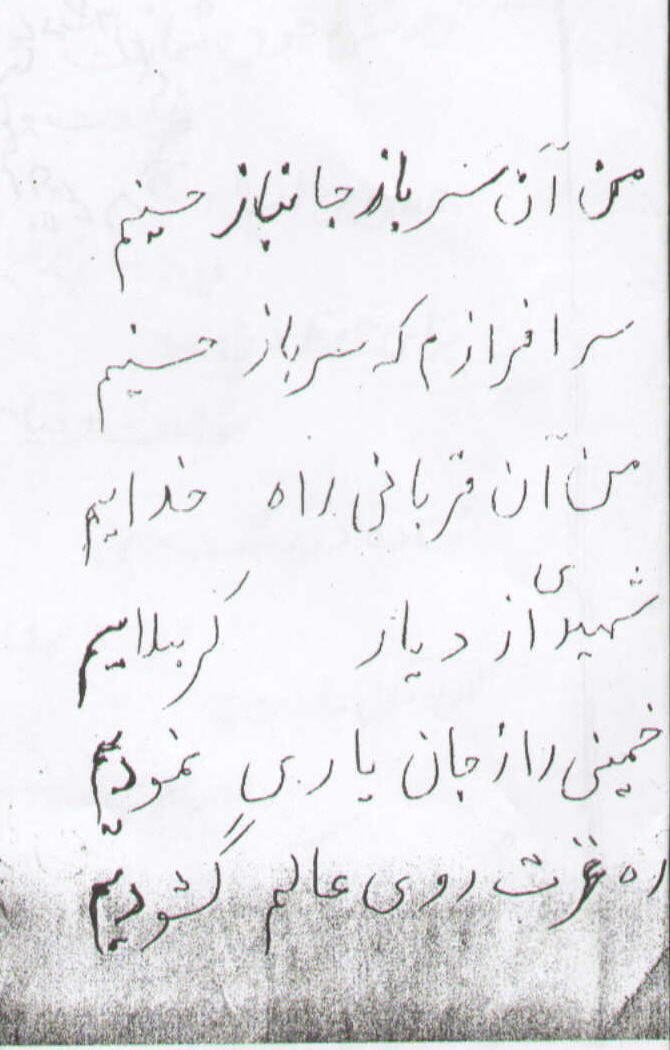 من آن سرباز جانباز حسینم
سرافرازم که سرباز حسینم
من آن قربانی راه خدایم
شهیدی از دیار کربلایم
خمینی را ز جان یاری نمودیم
ره عزت روی عالم گشودیم